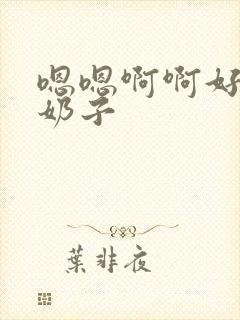 嗯嗯啊啊好
奶子
葉非夜